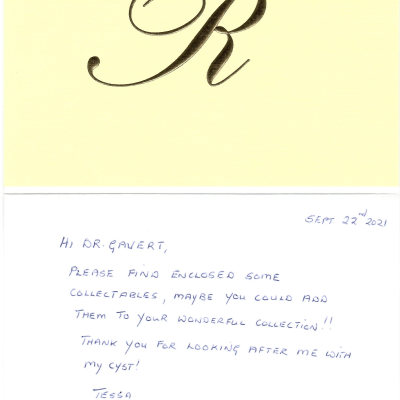 R
SEPT 22nd 2021
HI DR. GAVERT,
PLEASE FIND ENCLOSED SOME
COLLECTABLES, MAYBE YOU COULD ADD
THEM TO YOUR WONDERFUL COLLECTION!!
THANK YOU FOR LOOKING AFTER ME WITH
MY CYST!
TESSA